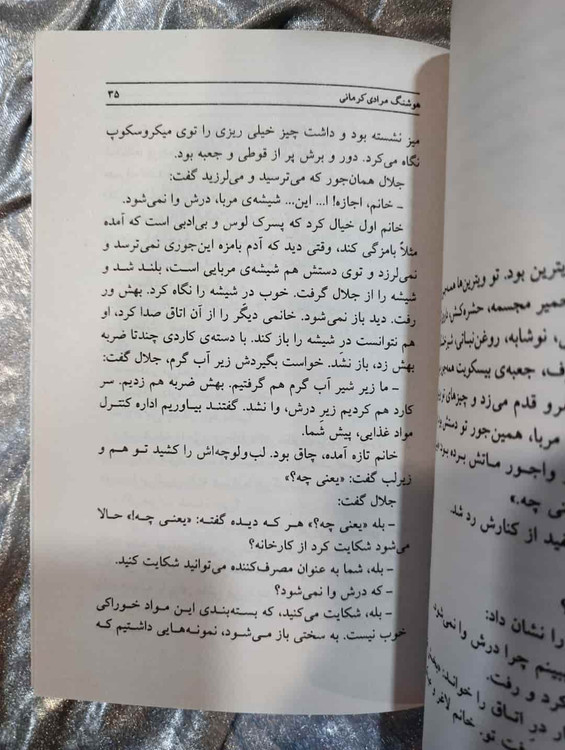 هوشنگ مرادی کرمانی
۳۵
میز نشسته بود و داشت چیز خیلی ریزی را توی میکروسکوپ
نگاه می‌کرد. دور و برش پر از قوطی و جعبه بود.
جلال همان‌جور که می‌ترسید و می‌لرزید گفت:
- خانم، اجازه! ا... این... شیشه‌ی مربا، درش وا نمی‌شود.
خانم اول خیال کرد که پسرک لوس و بی‌ادبی است که آمده
مثلاً بامزگی کند، وقتی دید که آدم بامزه این‌جوری نمی‌ترسد و
نمی‌لرزد و توی دستش هم شیشه‌ی مربایی است، بلند شد و
شیشه را از جلال گرفت. خوب در شیشه را نگاه کرد. بهش ور
رفت. دید باز نمی‌شود. خانمی دیگر را از آن اتاق صدا کرد، او
هم نتوانست در شیشه را باز کند. با دسته‌ی کاردی چندتا ضربه
بهش زد، باز نشد. خواست بگیردش زیر آب گرم، جلال گفت:
- ما زیر شیر آب گرم هم گرفتیم. بهش ضربه هم زدیم. سر
کارد هم کردیم زیرِ درش، وا نشد. گفتند بیاوریم اداره کنترل
مواد غذایی، پیش شما.
خانم تازه آمده، چاق بود. لب‌ولوچه‌اش را کشید تو هم و
زیرلب گفت: «یعنی چه؟»
جلال گفت:
- بله «یعنی چه؟» هر که دیده گفته: «یعنی چه!» حالا
می‌شود شکایت کرد از کارخانه؟
- بله، شما به عنوان مصرف‌کننده می‌توانید شکایت کنید.
- که درش وا نمی‌شود؟
- بله، شکایت می‌کنید، که بسته‌بندی این مواد خوراکی
خوب نیست. به سختی باز می‌شود، نمونه‌هایی داشتیم که
ویترین بود. تو ویترین‌ها همه
خمیر مجسمه، حشره‌کش،
نوشابه، روغن‌نباتی،
جعبه‌ی بیسکویت
قدم می‌زد و چیزهای
مربا، همین‌جور تو دستش
واجور ماتش برده بود
چه.»
از کنارش رد شد.
را نشان داد:
چرا درش وا نمی‌شود
کرد و رفت.
در اتاق را خواند:
تو: خانم لاغر و